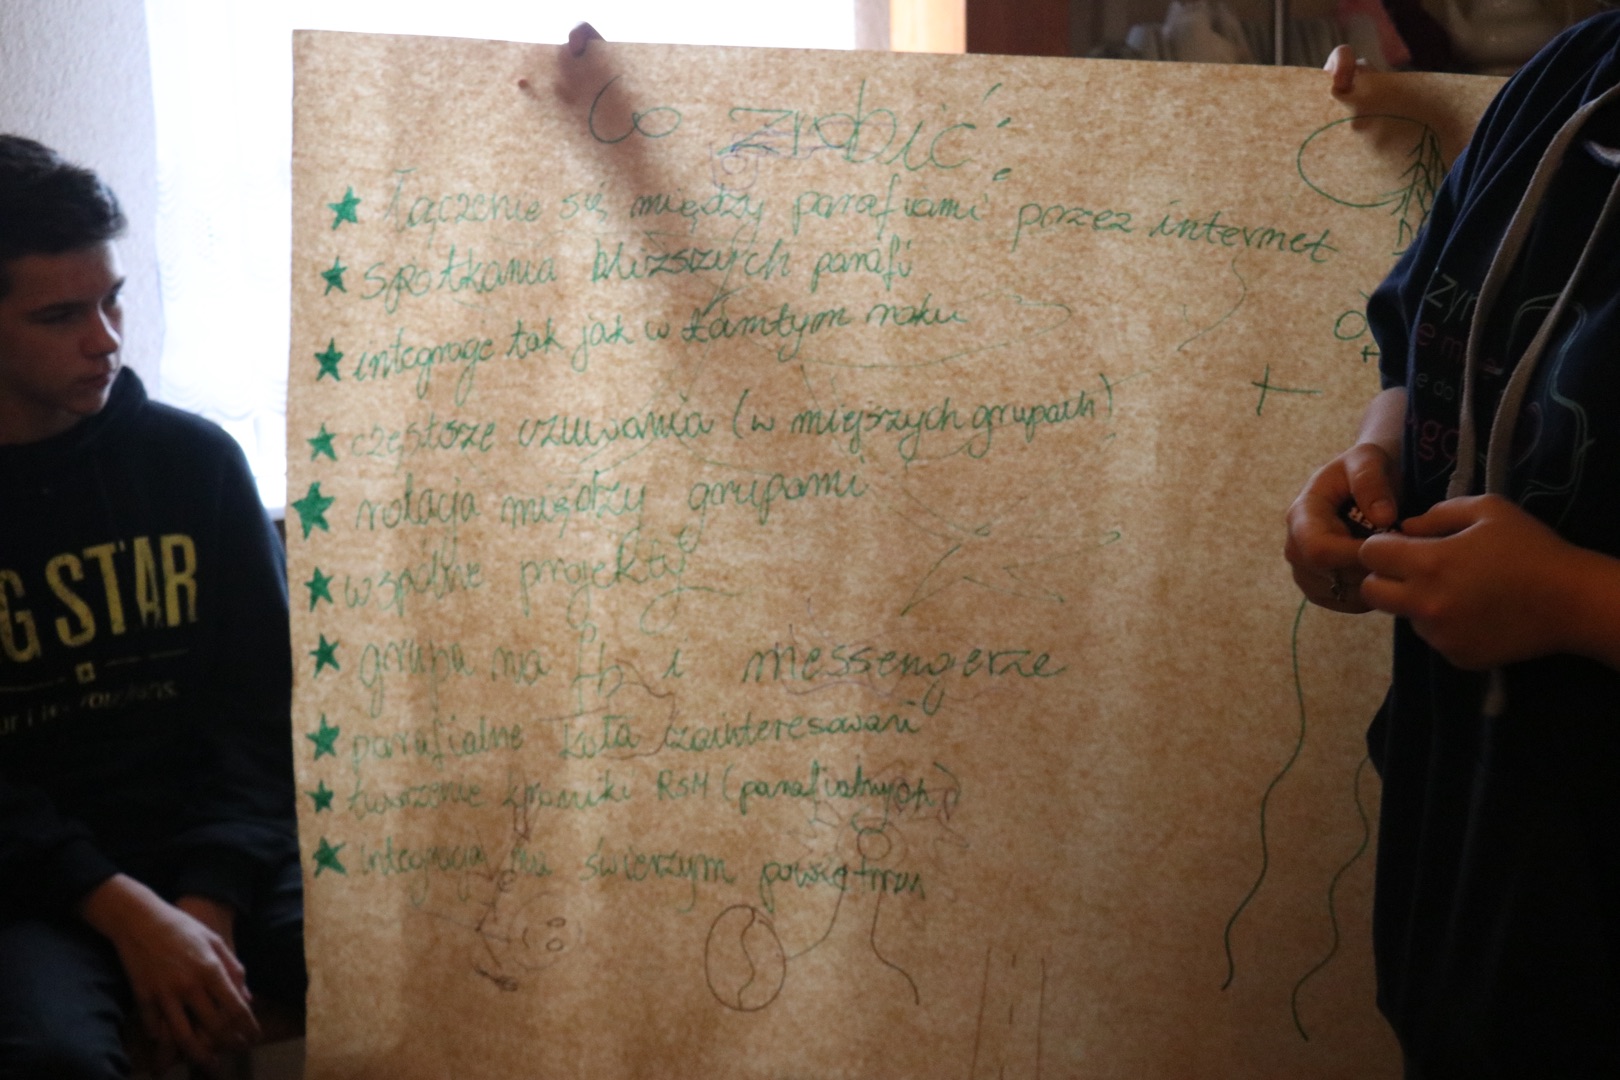 Co zrobić:
Łączenie się między parafiami przez internet
spotkania bliższych parafi
integracje tak jak w tamtym roku
częstsze czuwania (w miejszych grupach)
rotacja między grupami
wspólne projekty
grupa na fb i messengerze
parafialne koła zainteresowań
tworzenie kroniki RSM (parafialnych)
integracja na świerzym powiętrzu
G STAR